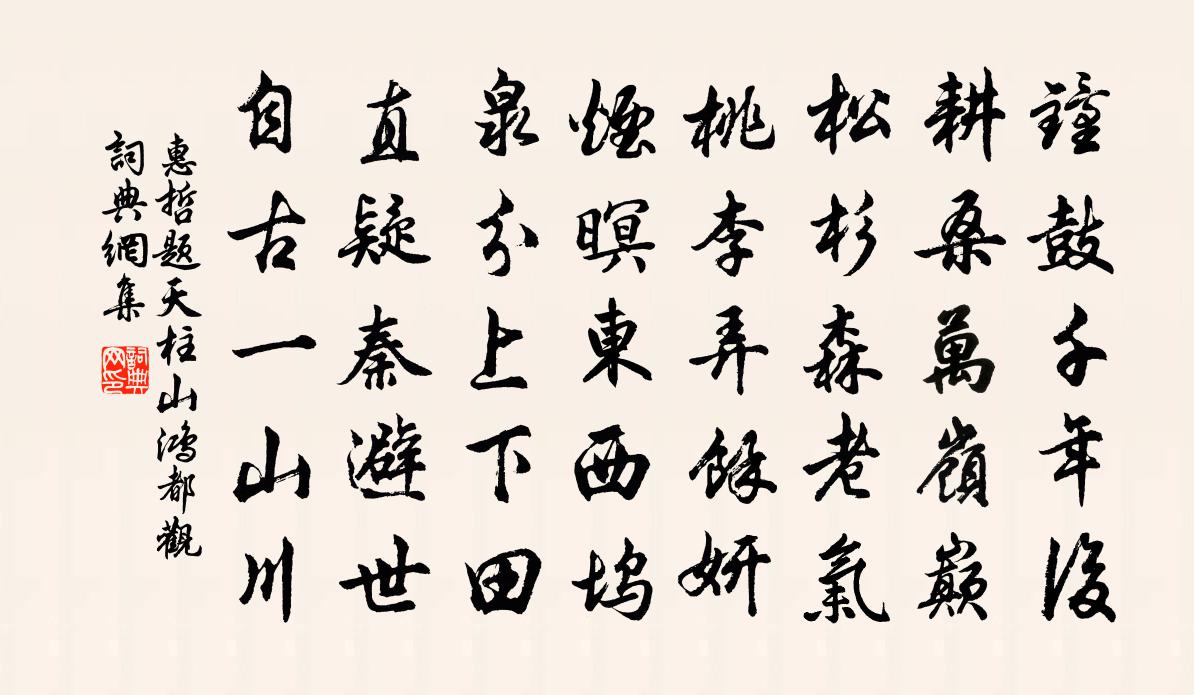 鐘鼓千年後
耕桑萬嶺巔
松杉森老氣
桃李弄餘妍
煙暝東西塢
泉分上下田
直疑秦避世
自古一山川
惠哲题天柱山鴻都觀
詞典網集
詞典网印